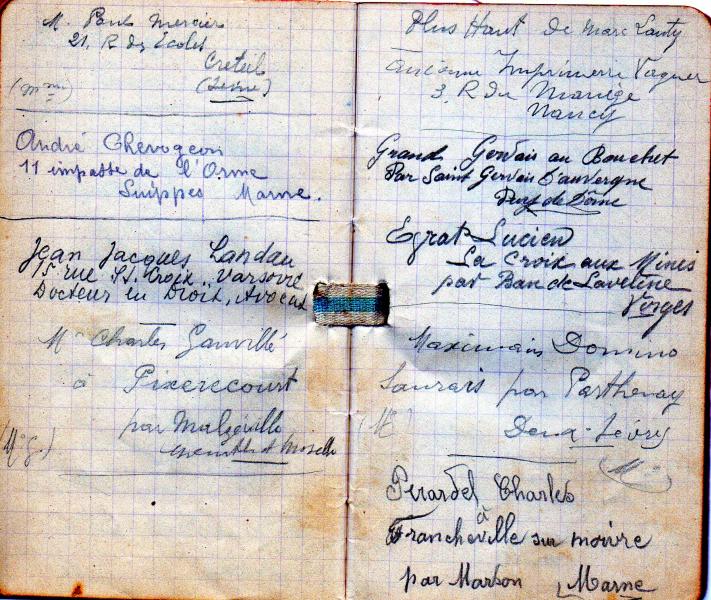 M. Paul Mercier
21, R des Ecoles
Creteil
(Seine)
André Chevogeon
11 impasse de l'Orme
Suippes Marne.
Jean Jacques Landau
15 rue St. Croix, Varsovie
Docteur en Droit, Avocat
Mr Charles Ganvillé
à Pixerecourt
par Malzéville
Meurthe et Moselle
Plus Haut De Marc Lanty
Ancienne Imprimerie Vagner
3, R du Manège
Nancy
Grand Gervais au Bouchet
Par Saint Gervais D'auvergne
Puy de Dôme
Egrat Lucien
La Croix aux Mines
par Ban de Laveline
Vosges
Maximain Domino
Saurais par Parthenay
Deux-Sèvres
Perardel Charles
à
Francheville sur moivre
par Marson Marne